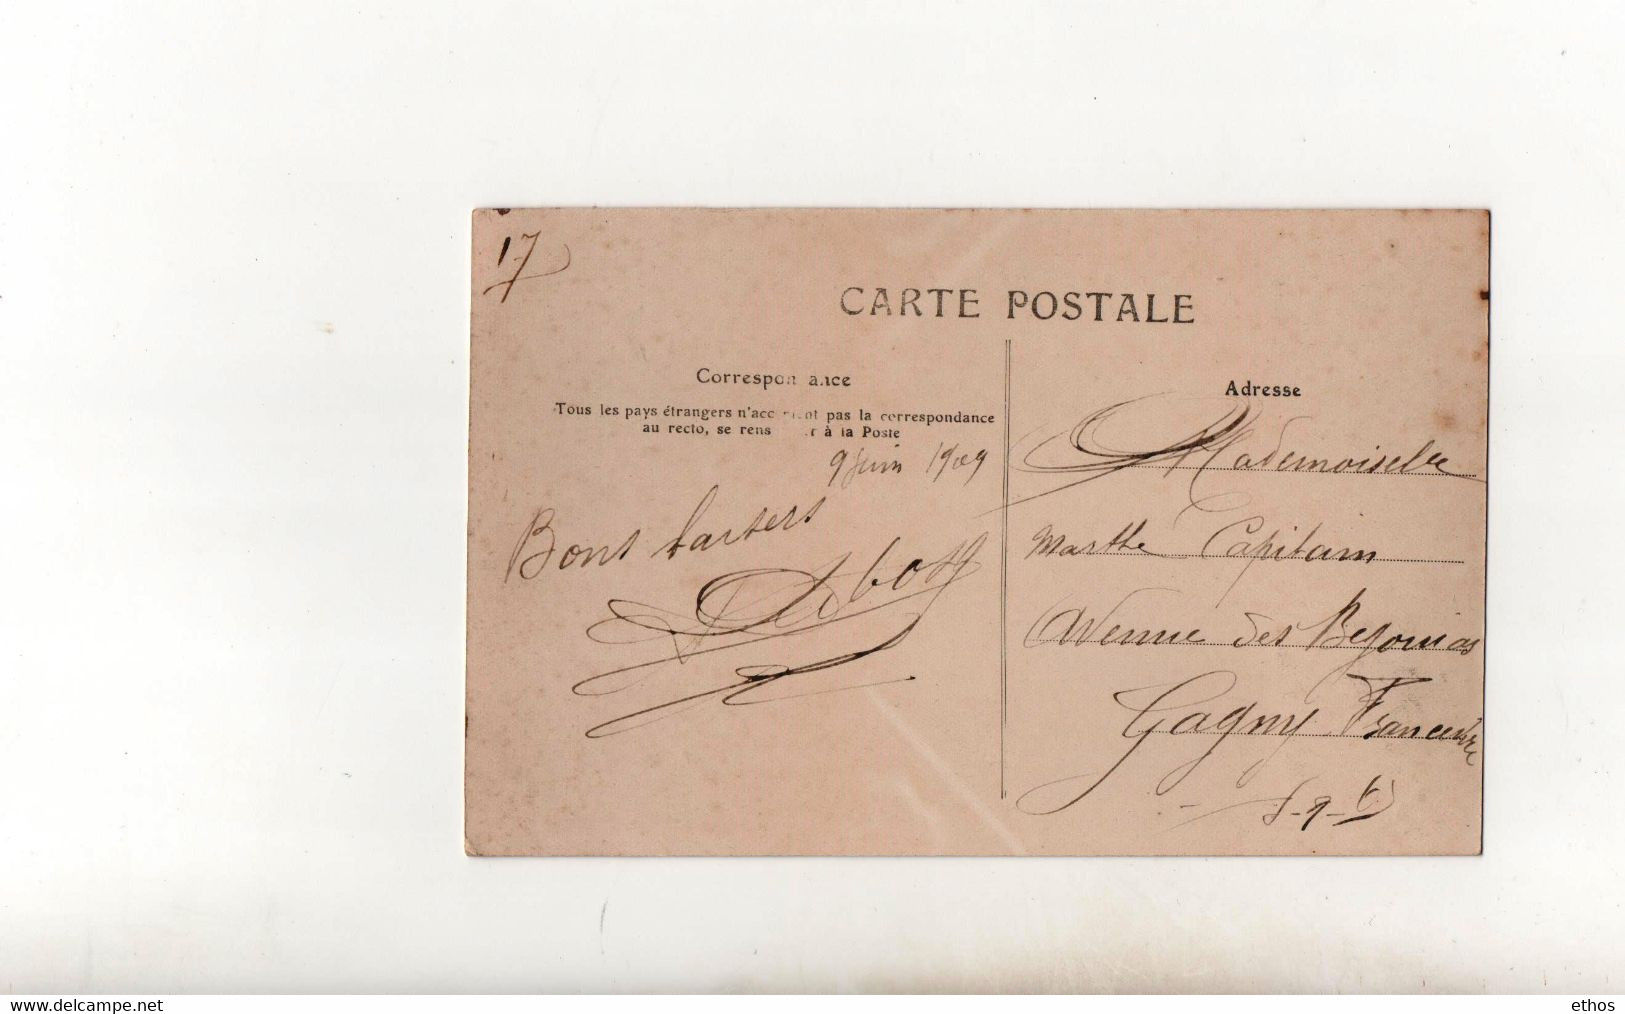 17
CARTE POSTALE
Correspondance
Tous les pays étrangers n'acceptent pas la correspondance
au recto, se renseigner à la Poste
9 Juin 1909
Bons baisers
Adresse
Mademoiselle
Marthe Capitain
Avenue des
Gagny
S-&-O
www.delcampe.net
ethos